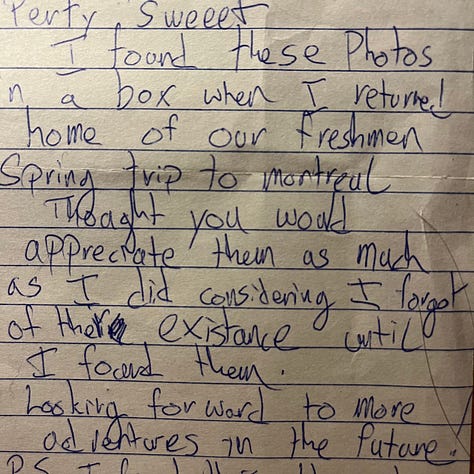 Perty Sweeet
I found these Photos
n a box when I returned
home of our freshmen
Spring trip to montreal
Thought you would
appreciate them as much
as I did considering I forgot
of there existance until
I found them.
Looking forward to more
adventures in the future.
P.S. I